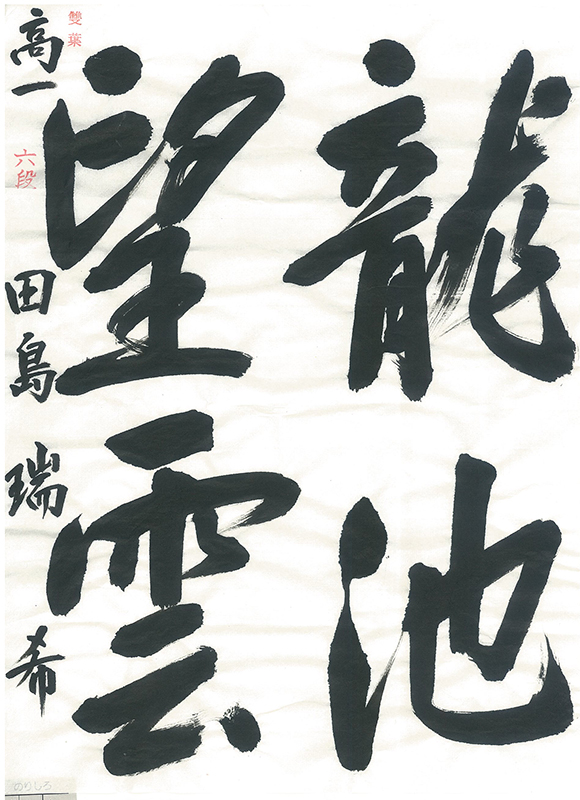 龍池
望雲
雙葉
高一 六段 田島瑞希
のりしろ